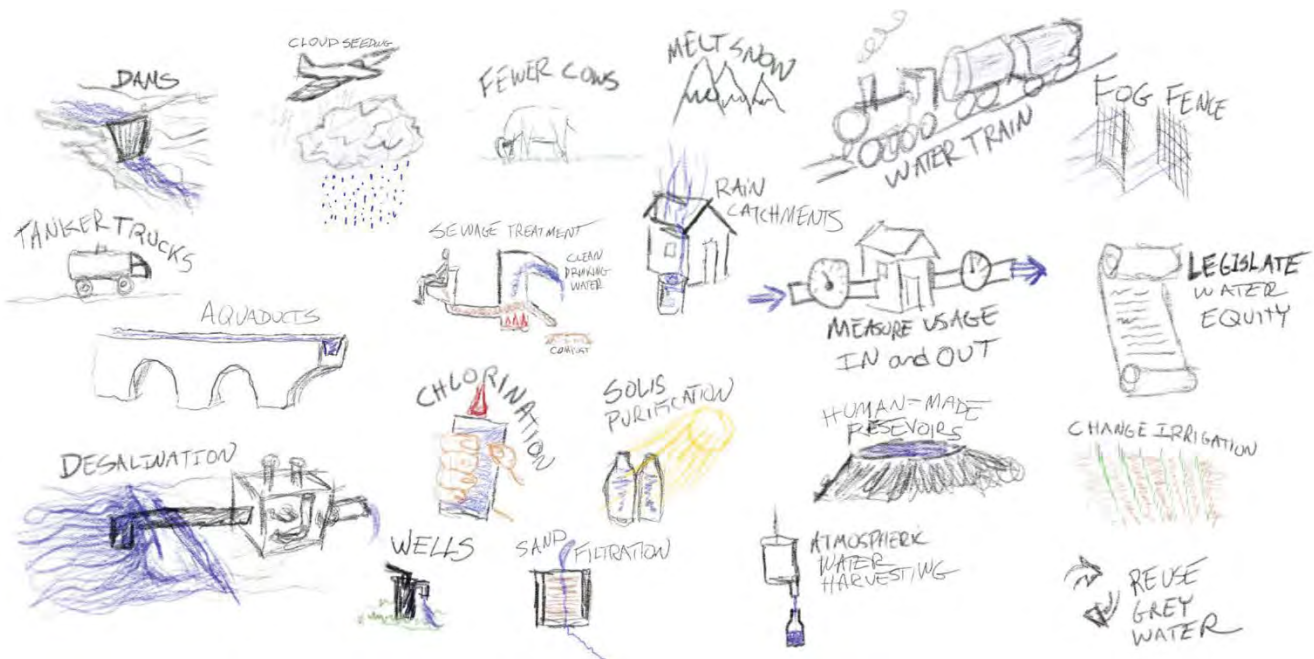 DAMS
CLOUD SEEDING
FEWER COWS
MELT SNOW
WATER TRAIN
FOG FENCE
TANKER TRUCKS
SEWAGE TREATMENT
CLEAN
DRINKING
WATER
COMPOST
RAIN
CATCHMENTS
MEASURE USAGE
IN and OUT
LEGISLATE
WATER
EQUITY
AQUADUCTS
CHLORINATION
SOLIS
PURIFICATION
HUMAN-MADE
RESEVOIRS
CHANGE IRRIGATION
DESALINATION
WELLS
SAND FILTRATION
ATMOSPHERIC
WATER
HARVESTING
REUSE
GREY
WATER